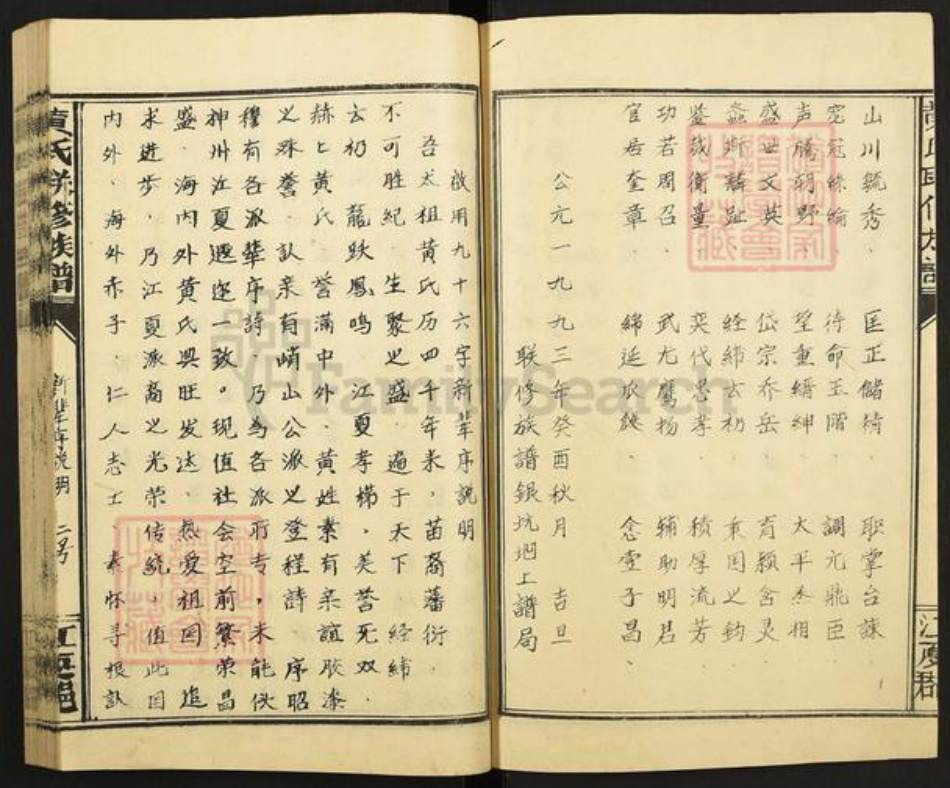 山川毓秀、匡正储精、职掌台谏
冠冕丝纶 待命玉階 調元鼎臣
声騰朝野 望重缙绅 太平丞相
盛世文英 岱宗乔岳 育颖含灵
螽斯麟趾 经纬云礽 秉国之钧
鉴哉衡量 奕代忠孝 積厚流芳
功若周召 武尤鷹扬 辅助明君
官居奎章 綿延瓜瓞 念靈子昌、
公元一九九三年癸酉秋月 吉旦
联修族譜銀坑圸上譜局
江夏郡
啟用九十六字新辈序説明
吾太祖黄氏历四千年来，苗裔蕃衍．
不可胜纪．生聚之盛．遍于天下．经纬
云礽．龍跃鳳鳴．江夏孝悌．美誉死双．
赫匕黄氏．誉滿中外．黄姓素有亲誼胶漆
之殊誉．认亲有峭山公派之登程詩．序昭
穆有各派辈序詩．乃為各派所专，未能伙
神州江夏遐迩一致。现值社会空前繁荣昌
盛．海内外黄氏興旺发达．热爱祖国 追
求进步，乃江夏派裔之光荣传統，值此国
内外．海外赤子．仁人志士 素怀寻根认
黄氏联修族譜
新辈序说明
二号
FamilySearch